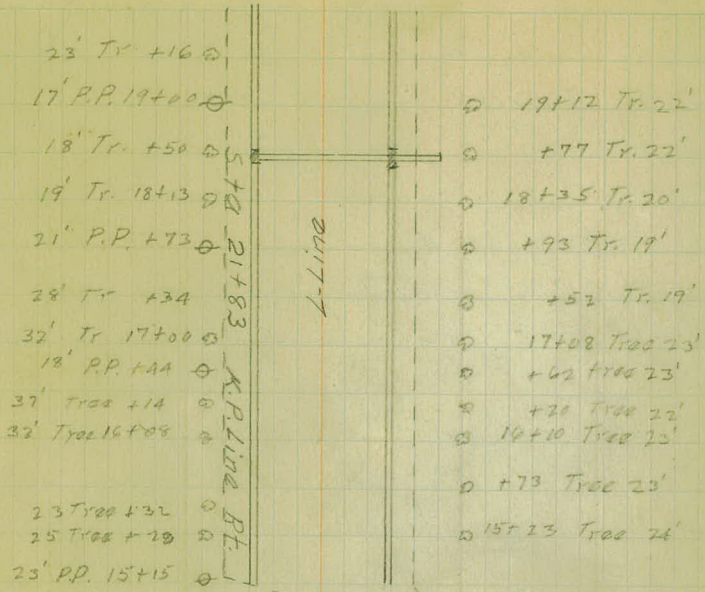 23' Tr +16
17' P.P. 19+00
18' Tr. +50
19' Tr. 18+13
21' P.P. +73
28' Tr +34
32' Tr 17+00
18' P.P. +44
32' Tree +14
32' Tree 16+08
23 Tree +32
25 Tree +28
23' P.P. 15+15
Sta 21+83 K.P. Line Bt.
19+12 Tr. 22'
+77 Tr. 22'
18+35 Tr. 20'
+93 Tr. 19'
+52 Tr. 19'
17+08 Tree 23'
+62 tree 23'
+20 Tree 22'
16+10 Tree 23'
+73 Tree 23'
15+23 Tree 24'